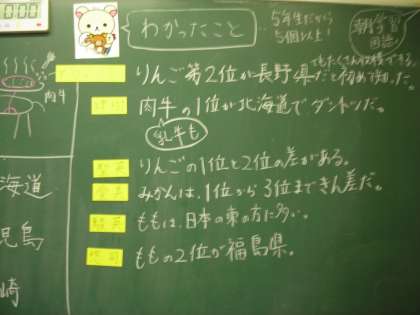 0:00
わかったこと
5年生だから
5個以上!
朝学習
国語
りんご第2位が長野県だと初めて知った。
肉牛
肉牛の1位が北海道でダントツだ。
乳牛も
りんごの1位と2位の差がある。
みかんは、1位から3位まできん差だ。
ももは、日本の東の方に多い。
ももの2位が福島県。
海道
児島
崎